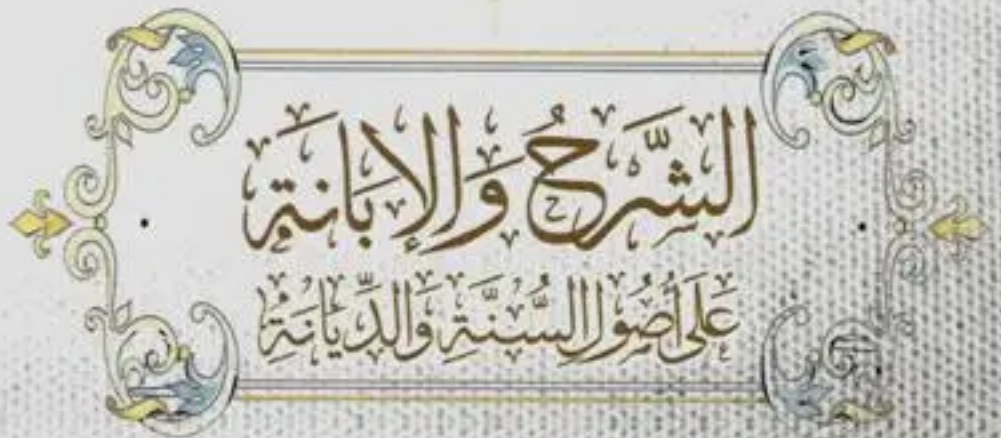 الشَّرحُ وَالإِبَانَة
عَلَى أُصُولِ السُّنَّةِ وَالدِّيَانَةِ